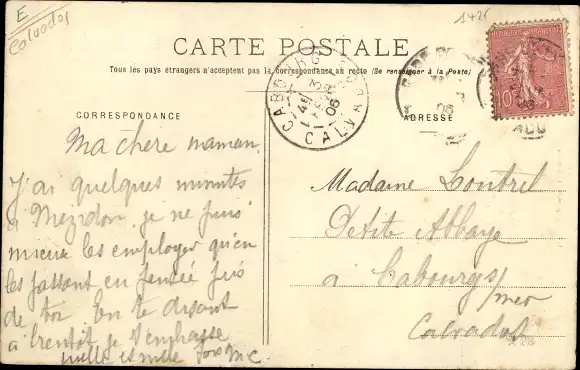 E
Calvados
1425
CARTE POSTALE
Tous les pays étrangers n'acceptent pas la correspondance au recto (Se renseigner à la Poste)
CORRESPONDANCE
Ma chère maman,
J'ai quelques minutes
à Mezidon, je ne puis
mieux les employer qu'en
les passant en pensée près
de toi. En te disant
à bientôt je t'embrasse
mille et mille fois
ADRESSE
Madame Loutrel
Petite Abbaye
à Cabourgs/
mer
Calvados
CABOURG
06
CALVADOS
10